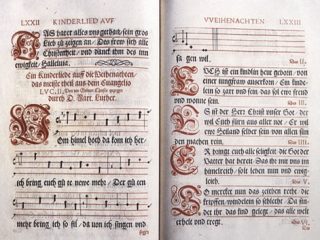 LXXII KINDERLIED AUF
DAs hat er alles uns gethan / sein gros
Lieb zu zeigen an / Des frew sich alle
Christenheit / und danck jhm des inn
ewigkeit / Halleluia.
Ein Kinderlied auff die Weihenachten /
das meiste theil aus dem Euangelio
D. Mart. Luther.
VOm himel hoch da kom ich her /
ich bring euch gute newe mehr / Der guten
mehr bring ich so viel / da von ich singen und
sagen
WEIHENACHTEN LXXIII
sa gen wil.
EUch ist ein kindlin heut geborn / von
einer jungfraw auserkorn / Ein kindelin
so zart und fein / das sol ewr freud
und wonne sein.
ES ist der Herr Christ unser Gott / der
wil euch fürn aus aller not / Er wil
ewr Heiland selber sein von allen sunden
den machen rein.
ER bringt euch alle seligkeit / die Gott der
Vatter hat bereit / Das jhr mit uns im
himelreich / solt leben nun und ewig
So mercket nun das zeichen recht / die
krippen / windelein so schlecht / Da findet
jhr das kind gelegt / das alle welt